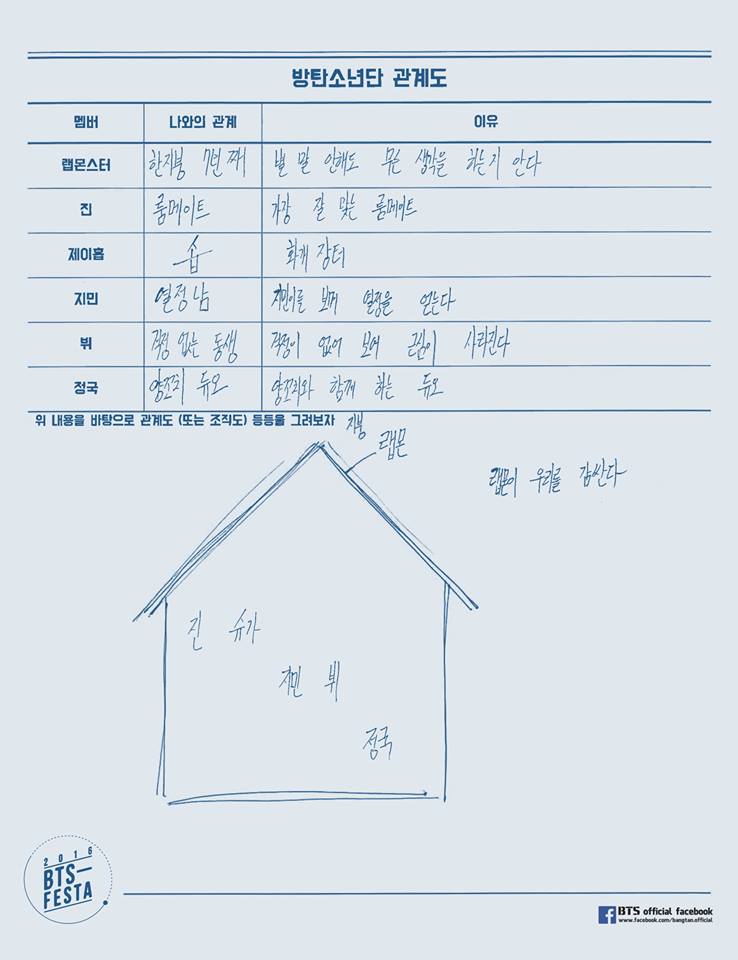 방탄소년단 관계도
멤버 나와의 관계 이유
랩몬스터 한지붕 7년 째 별 말 안해도 무슨 생각을 하는지 안다
진 룸메이트 가장 잘 맞는 룸메이트
제이홉 홉 화개 장터
지민 열정남 지민이를 보며 열정을 얻는다
뷔 걱정 없는 동생 걱정이 없어 보여 근심이 사라진다
정국 양꼬치 듀오 양꼬치와 함께 하는 듀오
위 내용을 바탕으로 관계도 (또는 조직도) 등등을 그려보자
지붕
랩몬
랩몬이 우리를 감싼다
진 슈가
지민 뷔
정국
2016
BTS
FESTA
BTS official facebook
www.facebook.com/bangtan.official